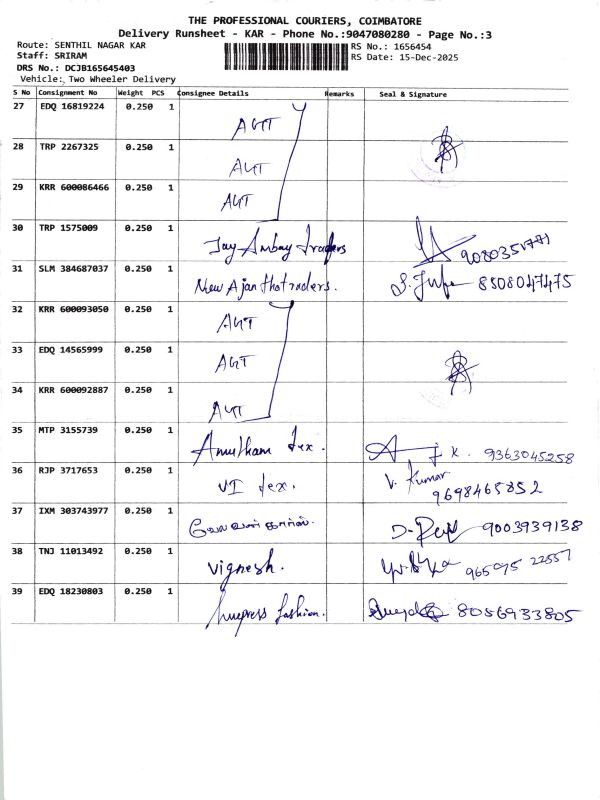 THE PROFESSIONAL COURIERS, COIMBATORE
Delivery Runsheet - KAR - Phone No.:9047080280 - Page No.:3
Route: SENTHIL NAGAR KAR RS No.: 1656454
Staff: SRIRAM RS Date: 15-Dec-2025
DRS No.: DCJB165645403
Vehicle: Two Wheeler Delivery
S No Consignment No Weight PCS Consignee Details Remarks Seal & Signature
27 EDQ 16819224 0.250 1
28 TRP 2267325 0.250 1
29 KRR 600086466 0.250 1
30 TRP 1575009 0.250 1 Jay Ambay Traders
31 SLM 384687037 0.250 1 New Ajantha traders. 8508047475
32 KRR 600093050 0.250 1
33 EDQ 14565999 0.250 1
34 KRR 600092887 0.250 1
35 MTP 3155739 0.250 1 Amutham tex. 9363045258
36 RJP 3717653 0.250 1 VI tex. V. Kumar
9698465852
37 IXM 303743977 0.250 1 9003939138
38 TNJ 11013492 0.250 1 Vignesh. 965095 22557
39 EDQ 18230803 0.250 1 fashion. 8056933805